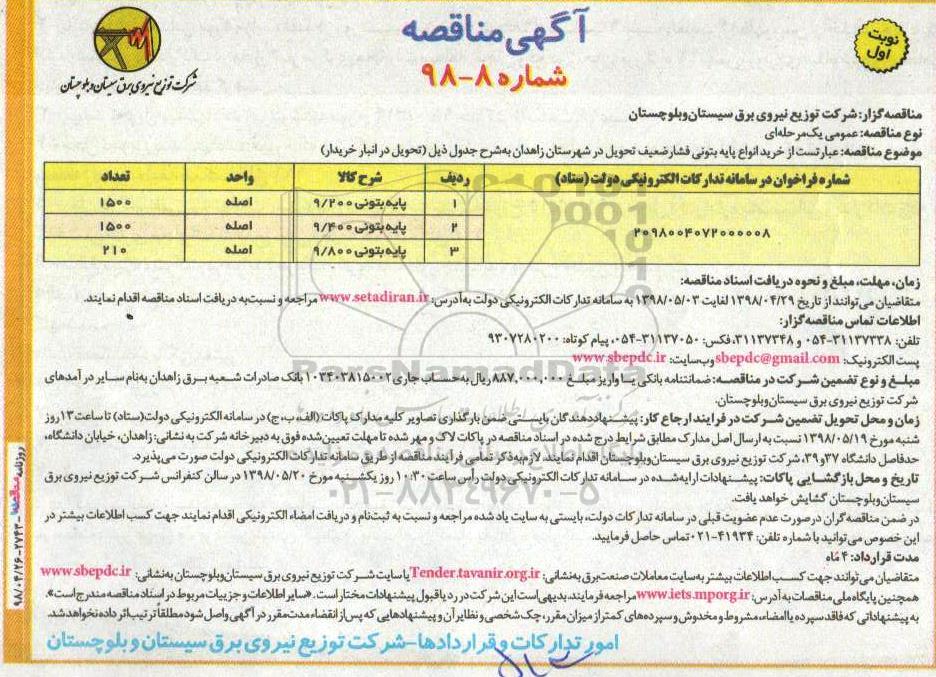 آگهی مناقصه
شماره ۸-۹۸
نوبت
اول
شرکت توزیع نیروی برق سیستان و بلوچستان
مناقصه‌گزار: شرکت توزیع نیروی برق سیستان‌وبلوچستان
نوع مناقصه: عمومی یک‌مرحله‌ای
موضوع مناقصه: عبارتست از خرید انواع پایه بتونی فشارضعیف تحویل در شهرستان زاهدان به‌شرح جدول ذیل (تحویل در انبار خریدار)
شماره فراخوان در سامانه تدارکات الکترونیکی دولت (ستاد) ردیف شرح کالا واحد تعداد
۲۰۹۸۰۰۴۰۷۲۰۰۰۰۰۸
۱ پایه بتونی ۹/۲۰۰ اصله ۱۵۰۰
۲ پایه بتونی ۹/۴۰۰ اصله ۱۵۰۰
۳ پایه بتونی ۹/۸۰۰ اصله ۲۱۰
زمان، مهلت، مبلغ و نحوه دریافت اسناد مناقصه:
متقاضیان می‌توانند از تاریخ ۱۳۹۸/۰۴/۲۹ لغایت ۱۳۹۸/۰۵/۰۳ به سامانه تدارکات الکترونیکی دولت به‌آدرس: www.setadiran.ir مراجعه و نسبت‌به دریافت اسناد مناقصه اقدام نمایند.
اطلاعات تماس مناقصه‌گزار:
تلفن: ۳۱۱۳۷۳۳۸-۰۵۴ و ۳۱۱۳۷۳۴۸، فکس: ۳۱۱۳۷۰۵۰-۰۵۴، پیام کوتاه: ۹۳۰۷۲۸۰۲۰۰
پست الکترونیک: sbepdc@gmail.com وب‌سایت: www.sbepdc.ir
مبلغ و نوع تضمین شرکت در مناقصه: ضمانتنامه بانکی یا واریز مبلغ ۸۸۷,۰۰۰,۰۰۰ ریال به‌حساب جاری ۱۰۳۴۰۳۸۱۵۰۰۲ بانک صادرات شعبه برق زاهدان به‌نام سایر درآمدهای
شرکت توزیع نیروی برق سیستان‌وبلوچستان.
زمان و محل تحویل تضمین شرکت در فرایند ارجاع کار: پیشنهاددهندگان بایستی ضمن بارگذاری تصاویر کلیه مدارک پاکات (الف، ب، ج) در سامانه الکترونیکی دولت (ستاد) تا ساعت ۱۳ روز
شنبه مورخ ۱۳۹۸/۰۵/۱۹ نسبت به ارسال اصل مدارک مطابق شرایط درج شده در اسناد مناقصه در پاکات لاک و مهر شده تا مهلت تعیین‌شده فوق به دبیرخانه شرکت به نشانی: زاهدان، خیابان دانشگاه،
حدفاصل دانشگاه ۳۷ و ۳۹، شرکت توزیع نیروی برق سیستان‌وبلوچستان اقدام نمایند. لازم‌به‌ذکر تمامی فرآیند مناقصه از طریق سامانه تدارکات الکترونیکی دولت صورت می‌پذیرد.
تاریخ و محل بازگشایی پاکات: پیشنهادات ارایه‌شده در سامانه تدارکات الکترونیکی دولت رأس ساعت ۱۰:۳۰ روز یکشنبه مورخ ۱۳۹۸/۰۵/۲۰ در سالن کنفرانس شرکت توزیع نیروی برق
سیستان‌وبلوچستان گشایش خواهد یافت.
در ضمن مناقصه‌گران درصورت عدم عضویت قبلی در سامانه تدارکات دولت، بایستی به سایت یاد شده مراجعه و نسبت به ثبت‌نام و دریافت امضاء الکترونیکی اقدام نمایند جهت کسب اطلاعات بیشتر در
این خصوص می‌توانید با شماره تلفن: ۴۱۹۳۴-۰۲۱ تماس حاصل فرمایید.
مدت قرارداد: ۴ ماه
متقاضیان می‌توانند جهت کسب اطلاعات بیشتر به‌سایت معاملات صنعت‌برق به‌نشانی: Tender.tavanir.org.ir یا سایت شرکت توزیع نیروی برق سیستان‌وبلوچستان به‌نشانی: www.sbepdc.ir
همچنین پایگاه ملی مناقصات به‌آدرس: www.iets.mporg.ir مراجعه فرمایند. بدیهی است این شرکت در رد یا قبول پیشنهادات مختار است. «سایر اطلاعات و جزییات مربوط در اسناد مناقصه مندرج است».
به پیشنهاداتی که فاقد سپرده یا امضاء، مشروط و مخدوش و سپرده‌های کمتر از میزان مقرر، چک شخصی و نظایر آن و پیشنهادهایی که پس از انقضاء مدت مقرر در آگهی واصل شود مطلقاً ترتیب اثر داده نخواهد شد.
امور تدارکات و قراردادها-شرکت توزیع نیروی برق سیستان و بلوچستان
روزنامه مناقصه - ۲۷۴۳ - ۹۸/۰۴/۲۶
ParsNamadData
۰۲۱-۸۸۳۴۹۶۷۰-۵